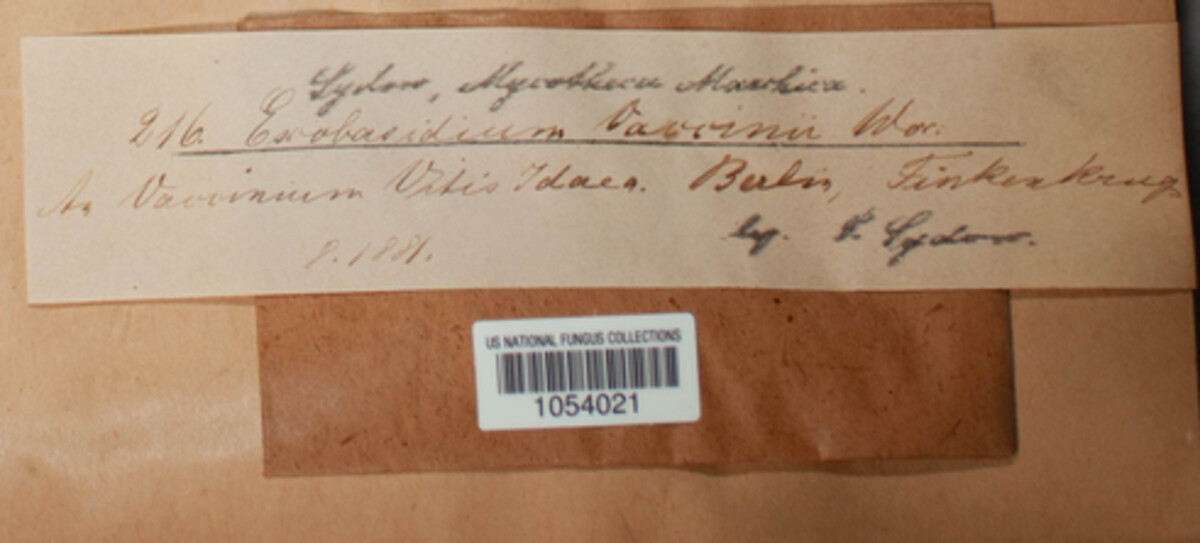 Sydow, Mycotheca Marchica.
216. Exobasidium Vaccinii Wor.
An Vaccinium Vitis Idaea. Berlin, Finkenkrug
8. 1881.
leg. P. Sydow.
US NATIONAL FUNGUS COLLECTIONS
1054021